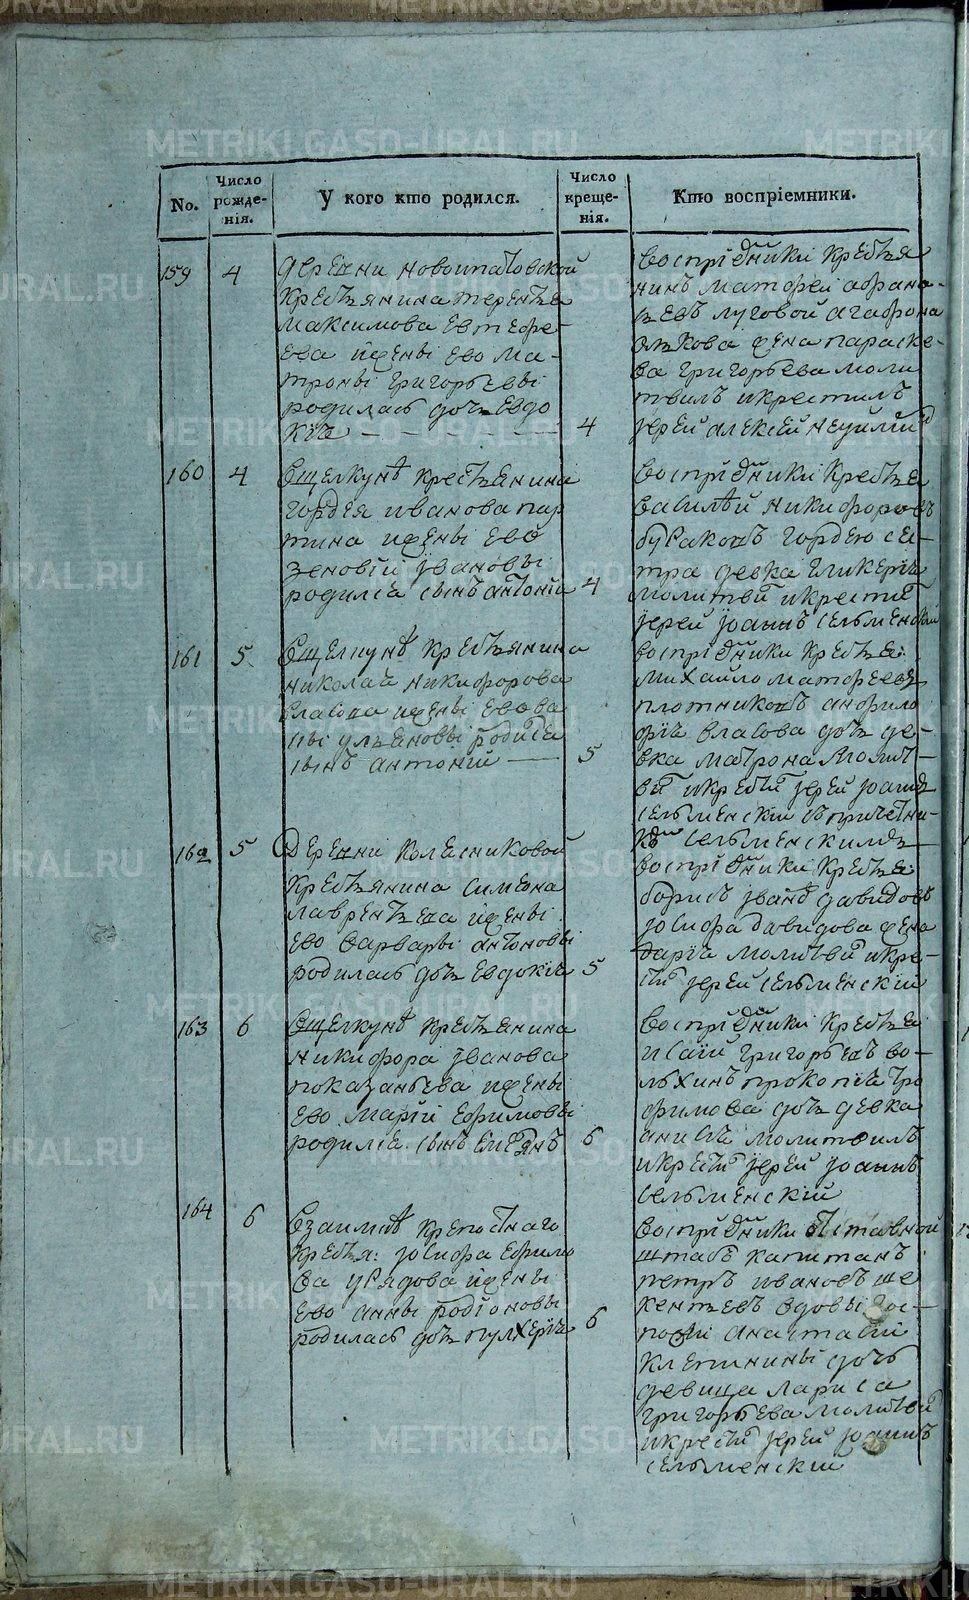 No.
Число рожде-
нія.
У кого кто родился.
Число креще-
нія.
Кто воспріемники.
159
4
деревни новоипатовской
крестьянина терентья
максимова евтефе-
ева ижены ево ма-
троны григорьевы
родилась дочь евдо
кїя
4
воспрїемники крестья
нинъ матфей афана-
ьевъ луговой агафона
жена параске-
ва григорьева моли
твилъ икрестилъ
їерей алексей
160
4
вщелкунѣ крестьянина
гордея иванова пар
тина ижены ево
зеновїи ївановы
родился сынъ антонїй
4
воспрїемники крестья
василѣй никифоровъ
бураковъ гордею сес-
тра девка гликерїя
молитвил икрестил
їерей їоаннъ сельменскїй
161
5
вщелкунѣ крестьянина
николая никифорова
власова ижены ево ва
сы ульяновы родися
сынъ антонїй
5
воспрїемники крестья:
михайло матфеевъ
плотниковъ анфило
фїя власова дочь де-
вка матрона молит-
вил икрестил їерей їоаннъ
сельменскїй съпричетни-
ком сельменскимъ
162
5
деревни колесниковой
крестьянина симеона
лаврентьева ижены
ево варвары антоновы
родилась дочь евдокїя
5
воспрїемники крестья:
борисъ їванов давидовъ
їосифа давидова жена
дарїя молитвил икре-
стил їерей сельменскїй
163
6
вщелкунѣ крестьянина
никифора їванова
показаньева ижены
ево марїи ефимовы
родился сынъ емелянъ
6
воспрїемники крестья
исаїй григорьевъ во-
лхинъ прокопїя тро
фимова дочь девка
анисья молитвилъ
икрестил їерей їоаннъ
сельменскїй
164
6
взаимкѣ крепостнаго
крестья: їосифа ефимо
ва урядова ижены
ево анны родїоновы
родилась дочь пулхерїя
6
воспрїемники отставной
штабс капитанъ
петръ ивановъ ше
кентьевъ вдовы гос-
пожи анастасїи
клепинины дочь
девица лариса
григорьева молитвил
икрестил їерей їоаннъ
сельменскїй
METRIKI.GASO-URAL.RU